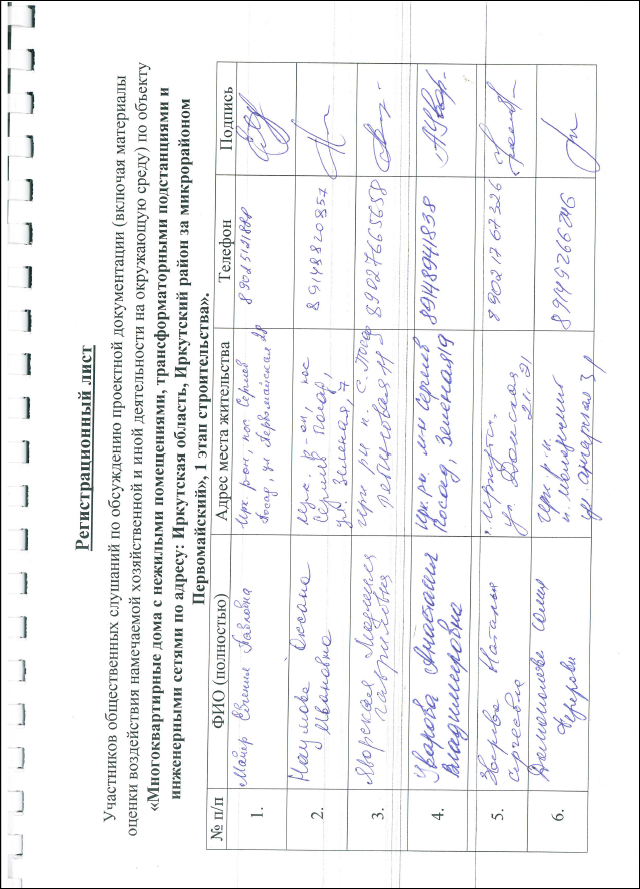 Регистрационный лист
Участников общественных слушаний по обсуждению проектной документации (включая материалы
оценки воздействия намечаемой хозяйственной и иной деятельности на окружающую среду) по объекту
«Многоквартирные дома с нежилыми помещениями, трансформаторными подстанциями и
инженерными сетями по адресу: Иркутская область, Иркутский район за микрорайоном
Первомайский», 1 этап строительства».
№ п/п ФИО (полностью) Адрес места жительства Телефон Подпись
1. Майер Евгения Павловна
Ирк. рон, пос Сергиев
Посад, ул Первомайская
2. Наумова Оксана
Ивановна
ирк. р-он, пос
Сергиев Посад,
ул. Зеленая, 7
89148820857
3. Яворская Людмила
Гавриловна
ирк рн п. С. Посад
89027665658
4. Уварова Анастасия
Владимировна
ирк. рн. мн Сергиев
Посад, Зеленая 19
89148941838
5. Наталья
Сергеевна
г. Иркутск.
ул. Донская
89021767326
6.
ирк. р-н
89149266246